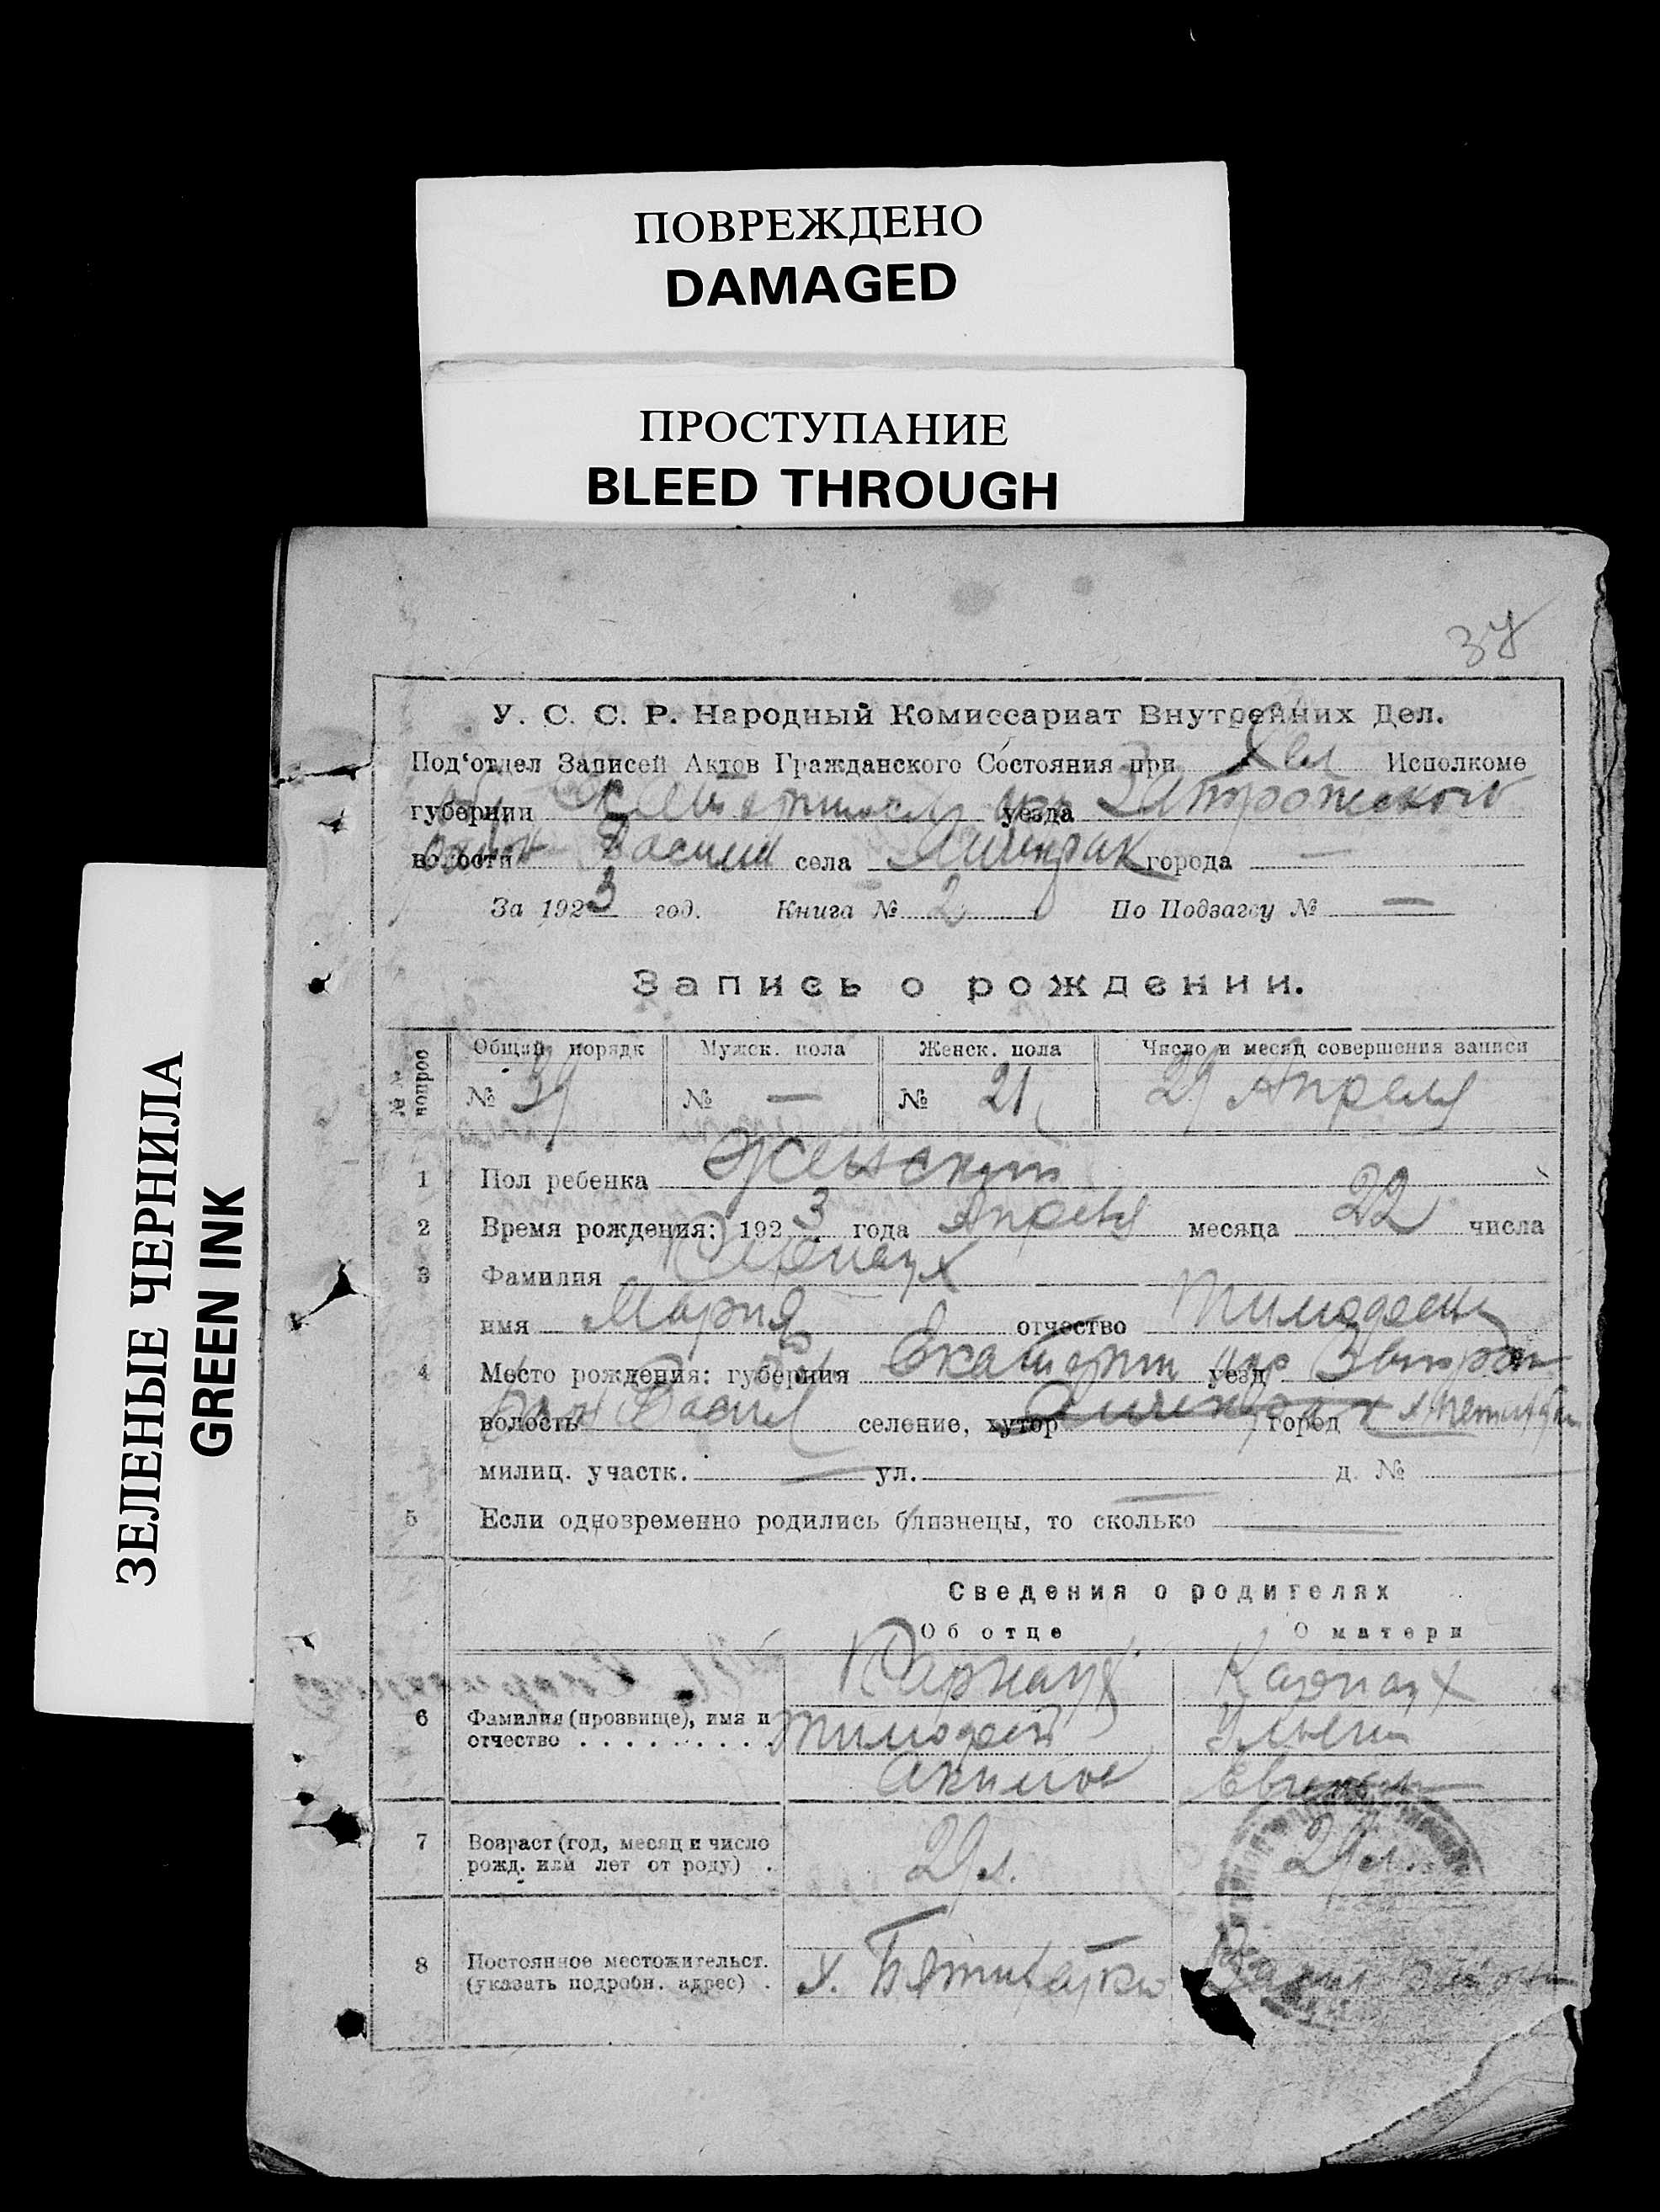 ПОВРЕЖДЕНО
DAMAGED
ПРОСТУПАНИЕ
BLEED THROUGH
ЗЕЛЕНЫЕ ЧЕРНИЛА
GREEN INK
У. С. С. Р. Народный Комиссариат Внутренних Дел.
Под‘отдел Записей Актов Гражданского Состояния при Исполкоме
губернии уезда Запорожского
волости Васили села города —
За 1923 год. Книга № 2 По Подзагсу № —
Запись о рождении.
№№ вопрос Общий порядк Мужск. пола Женск. пола Число и месяц совершения записи
№ 39 № — № 21 29 Апреля
1 Пол ребенка Женский
2 Время рождения: 1923 года Апреля месяца 22 числа
3 Фамилия Карнаух
имя Мария отчество Тимофеев
4 Место рождения: губерния Екатерин уезд
волость Васил селение, хутор город
милиц. участк. — ул. — д. №
5 Если одновременно родились близнецы, то сколько —
Сведения о родителях
Об отце О матери
6 Фамилия (прозвище), имя и отчество
Карнаух Карнаух
Тимофей
Акимов
7 Возраст (год, месяц и число рожд. или лет от роду) 29 л. 29 л.
8 Постоянное местожительст. (указать подробн. адрес) х.